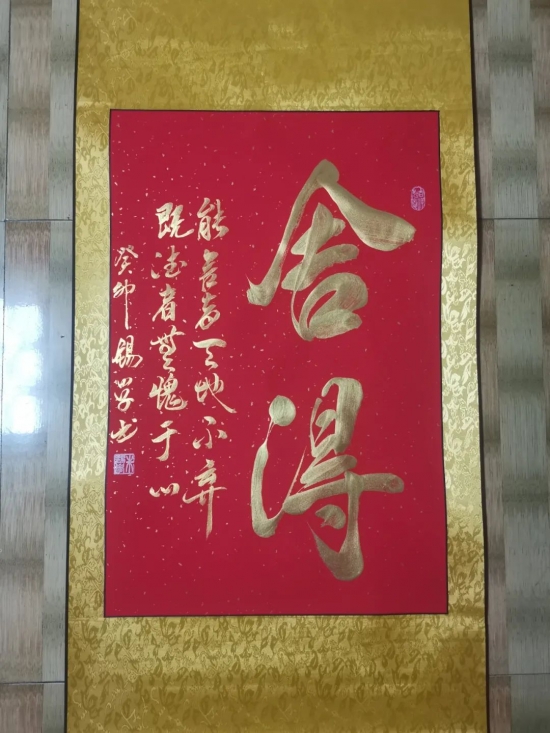 舍得
能舍者天地不弃
既得者無愧于心
癸卯 錫學书